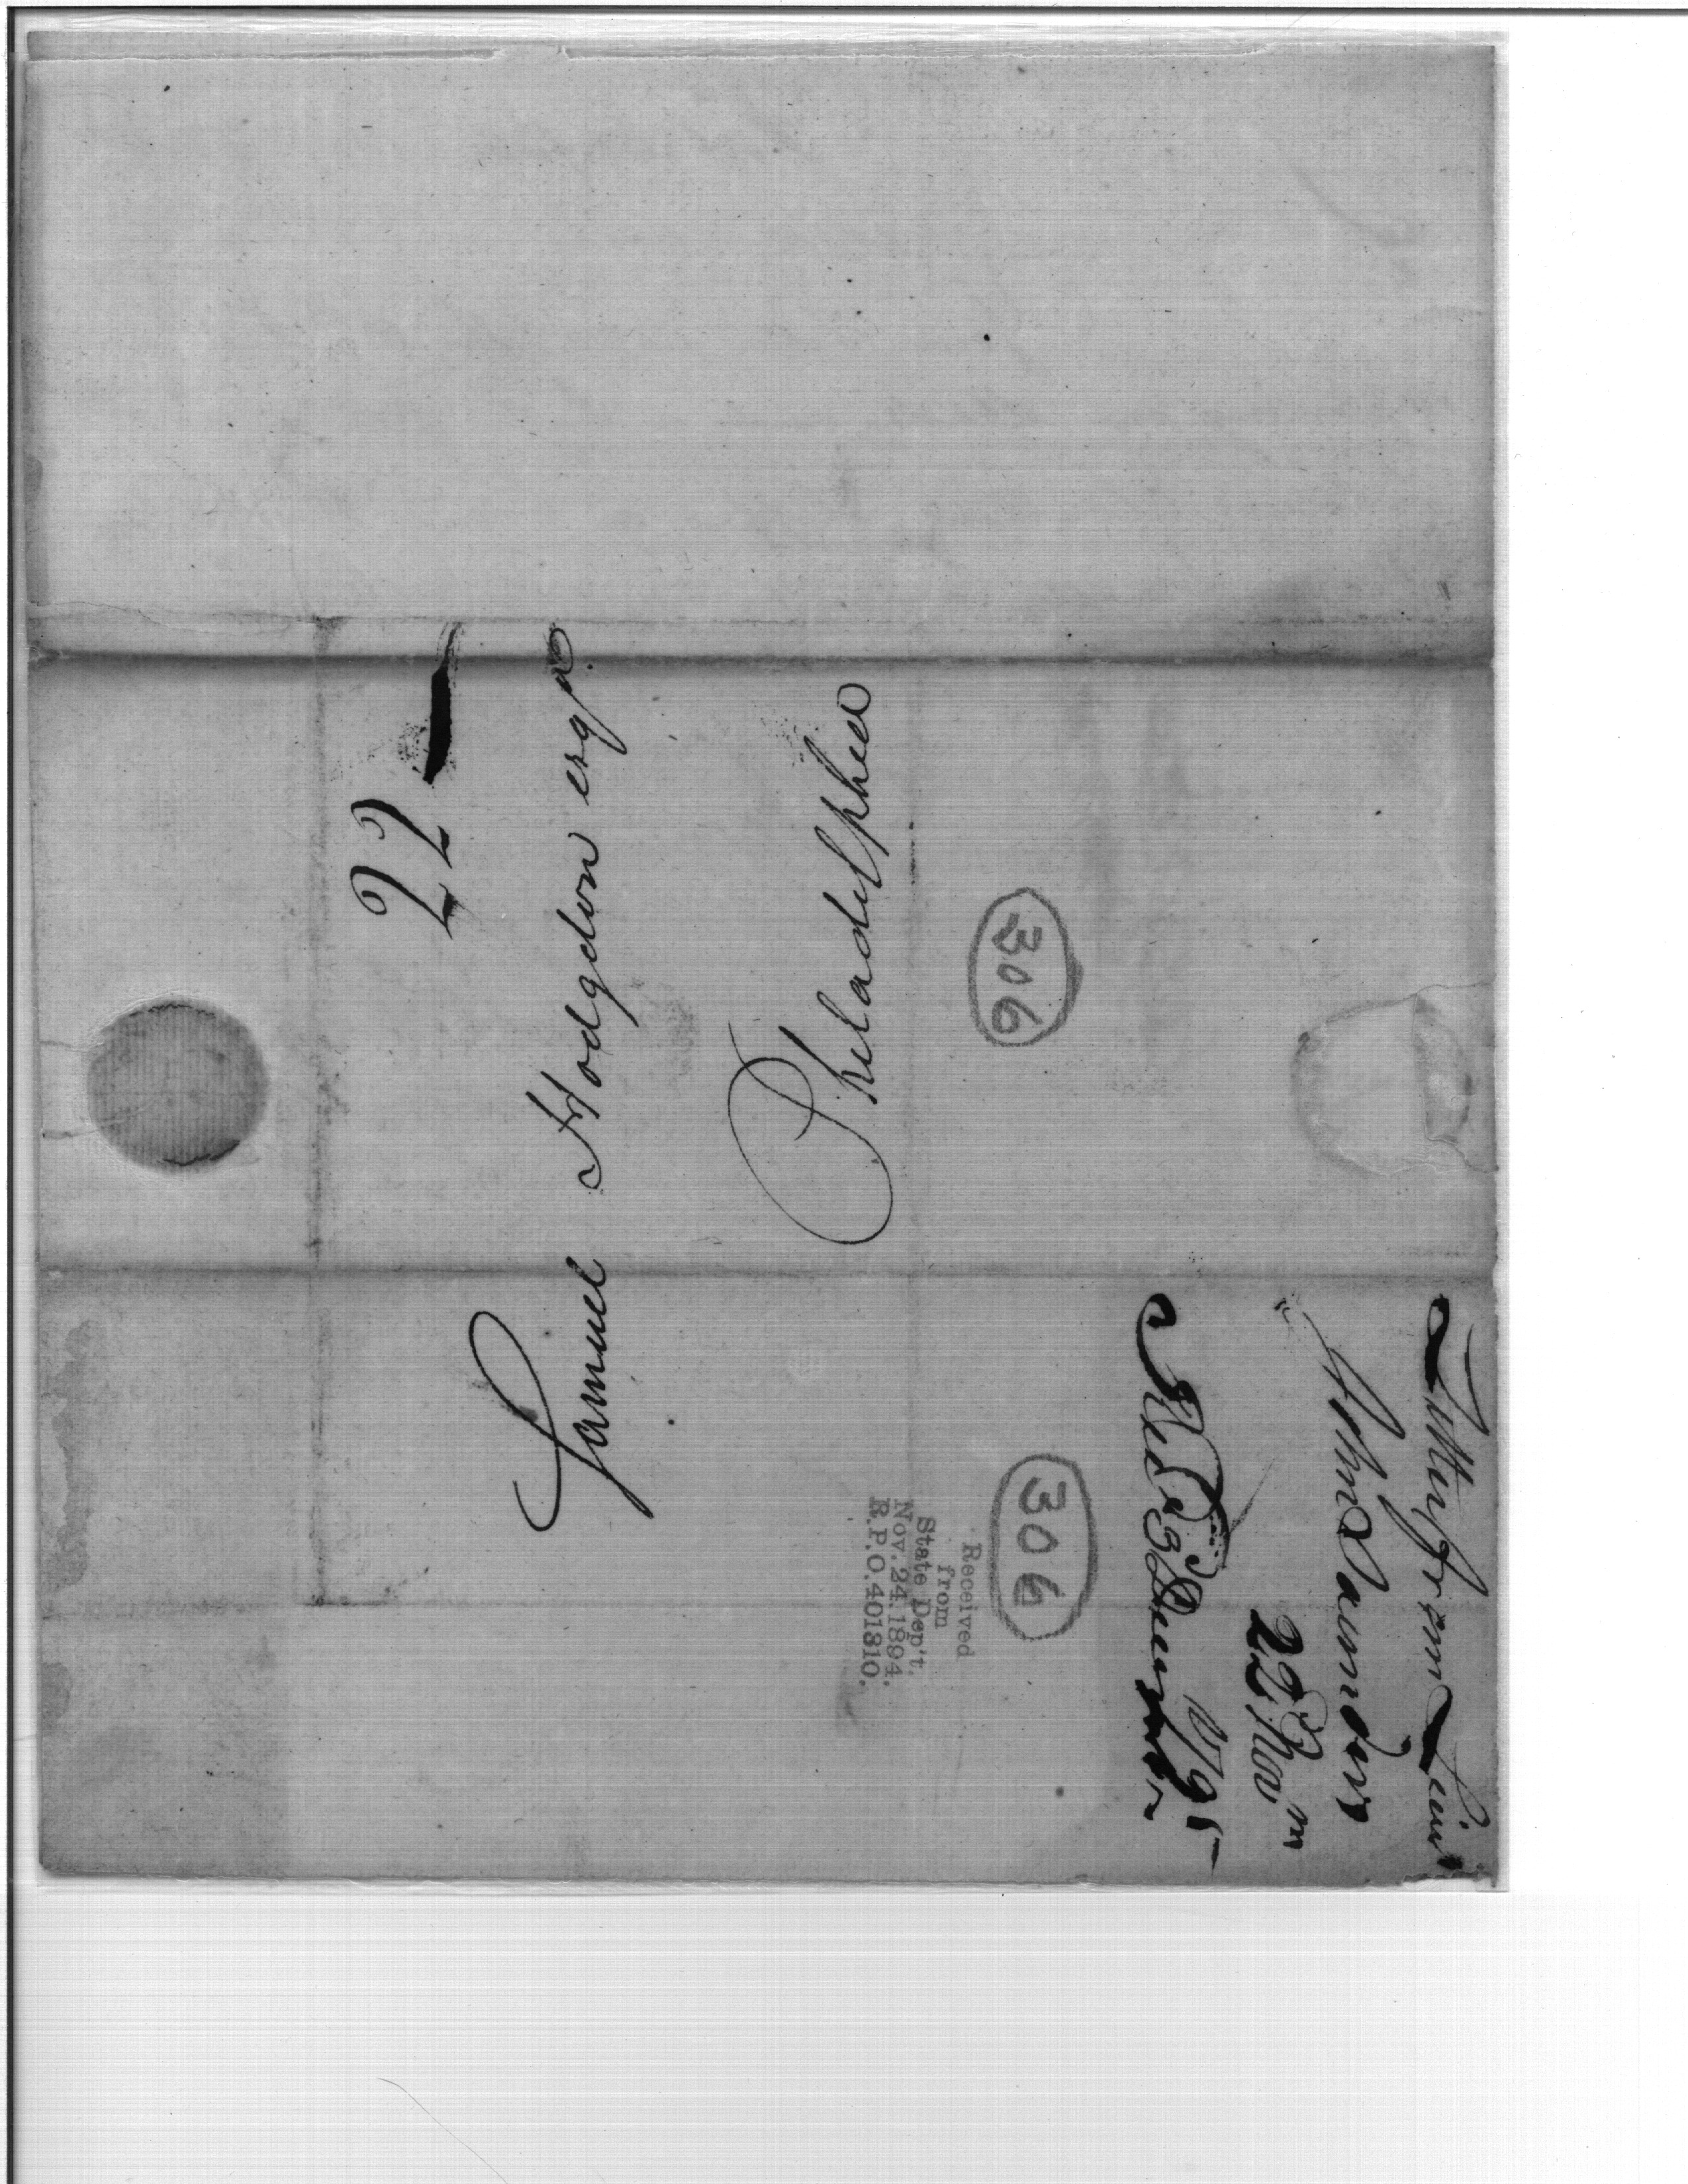 22
Samuel Hodgdon esqr
Philadelphia
306
306
Received
from
State Dep't.
Nov. 24, 1894.
R.P.O. 401810.
Letter from Lieut
John Saunders
22d Novm
1795
Recd 3d December